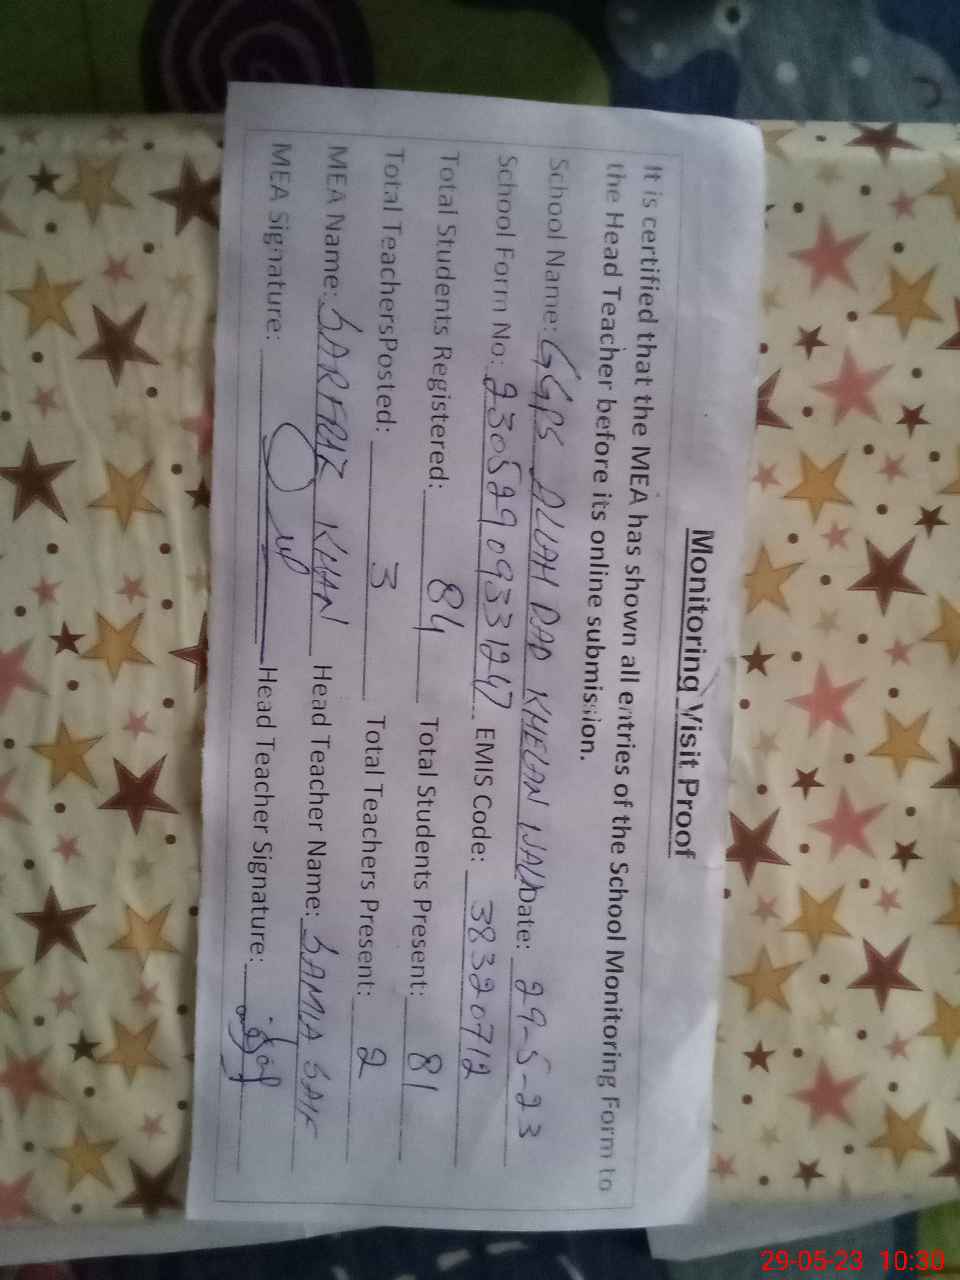 Monitoring Visit Proof
It is certified that the MEA has shown all entries of the School Monitoring Form to
the Head Teacher before its online submission.
School Name: GGPS ALLAH DAD KHELAN WALI Date: 29-5-23
School Form No: 23052909331247 EMIS Code: 38320712
Total Students Registered: 84 Total Students Present: 81
Total TeachersPosted: 3 Total Teachers Present: 2
MEA Name: SARFRAZ KHAN Head Teacher Name: SAMIA
MEA Signature: Head Teacher Signature:
29-05-23 10:30